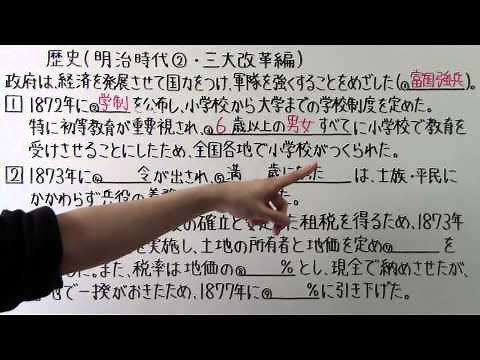 歴史(明治時代②・三大改革編)
政府は、経済を発展させて国力をつけ、軍隊を強くすることをめざした(富国強兵)。
1 1872年に学制を公布し、小学校から大学までの学校制度を定めた。
特に初等教育が重要視され、6歳以上の男女すべてに小学校で教育を
受けさせることにしたため、全国各地で小学校がつくられた。
2 1873年に 令が出され、満 歳になった は、士族・平民に
かかわらず兵役の義務
の確立と安定した租税を得るため、1873年
を実施し、土地の所有者と地価を定め を
た。また、税率は地価の %とし、現金で納めさせたが、
地で一揆がおきたため、1877年に %に引き下げた。